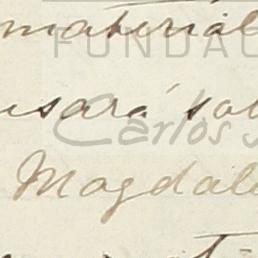 material
FUNDAC
usará sob
Carlos S
Magdale